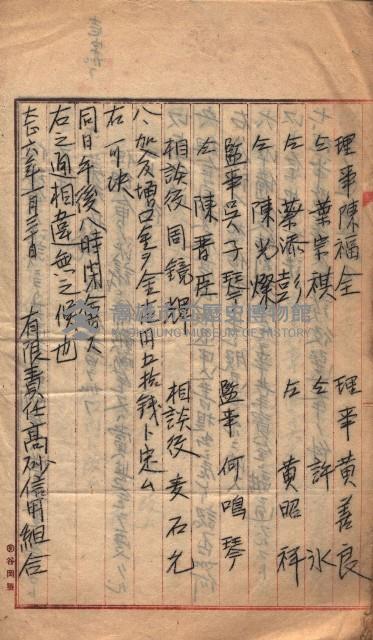 理事陳福全　理事黃善良
仝　葉宗祺　仝　許　氷
仝　葉添彭　仝　黃昭祥
仝　陳光燦
監事吳子琴　監事何鳴琴
仝　陳晋臣
相談役周鏡　相談役　石允
八、加入增口金ヲ金壹円五拾錢ト定ム
右可決
同日午後八時閉會ス
右之通相違無之候也
大正六年一月三十日　有限責任高砂信用組合
高雄市立歷史博物館
谷岡